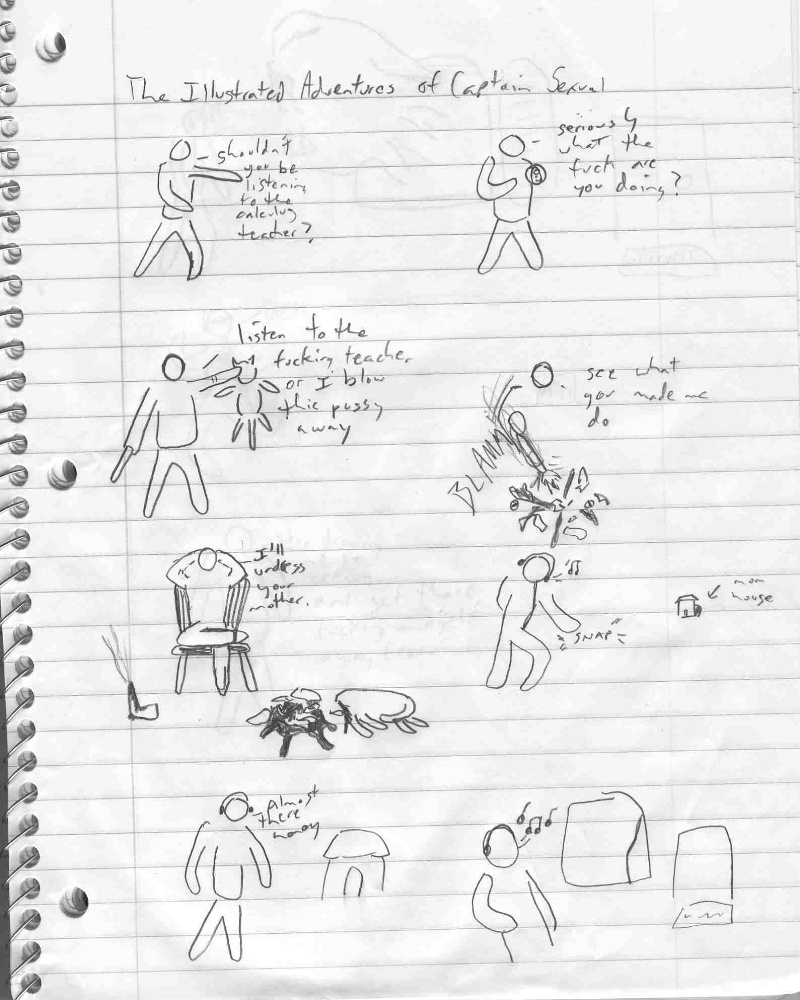 The Illustrated Adventures of Captain Sexual
shouldn't
you be
listening
to the
calculus
teacher?
seriously
what the
fuck are
you doing?
listen to the
fucking teacher
or I blow
this pussy
away
BLAM
see what
you made me
do
I'll
undress
your
mother.
SNAP
mom
house
almost
there